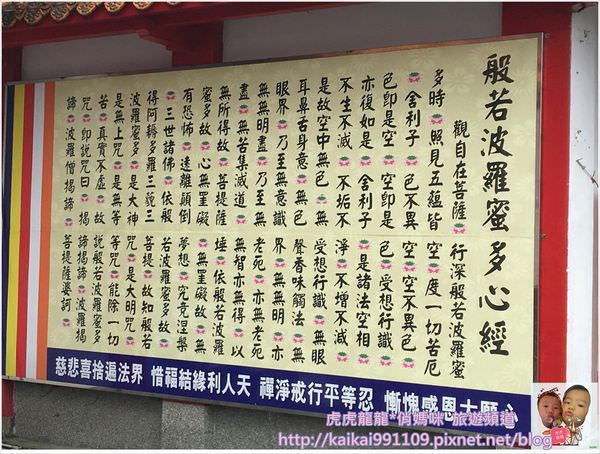 般若波羅蜜多心經
觀自在菩薩 行深般若波羅蜜
多時 照見五蘊皆空 度一切苦厄
舍利子 色不異空 空不異色
色即是空 空即是色 受想行識
亦復如是 舍利子 是諸法空相
不生不滅 不垢不淨 不增不減
是故空中無色 無受想行識 無眼
耳鼻舌身意 無色聲香味觸法 無
眼界 乃至無意識界 無無明 亦
無無明盡 乃至無老死 亦無老死
盡 無苦集滅道 無智亦無得 以
無所得故 菩提薩埵 依般若波羅
蜜多故 心無罣礙 無罣礙故 無
有恐怖 遠離顛倒夢想 究竟涅槃
三世諸佛 依般若波羅蜜多故
得阿耨多羅三藐三菩提 故知般若
波羅蜜多 是大神咒 是大明咒
是無上咒 是無等等咒 能除一切
苦 真實不虛 故說般若波羅蜜多
咒 即說咒曰 揭諦揭諦 波羅揭
諦 波羅僧揭諦 菩提薩婆訶
慈悲喜捨遍法界 惜福結緣利人天 禪淨戒行平等忍 慚愧感恩大願心
虎虎龍龍*俏媽咪 旅遊頻道
http://kaikai991109.pixnet.net/blog